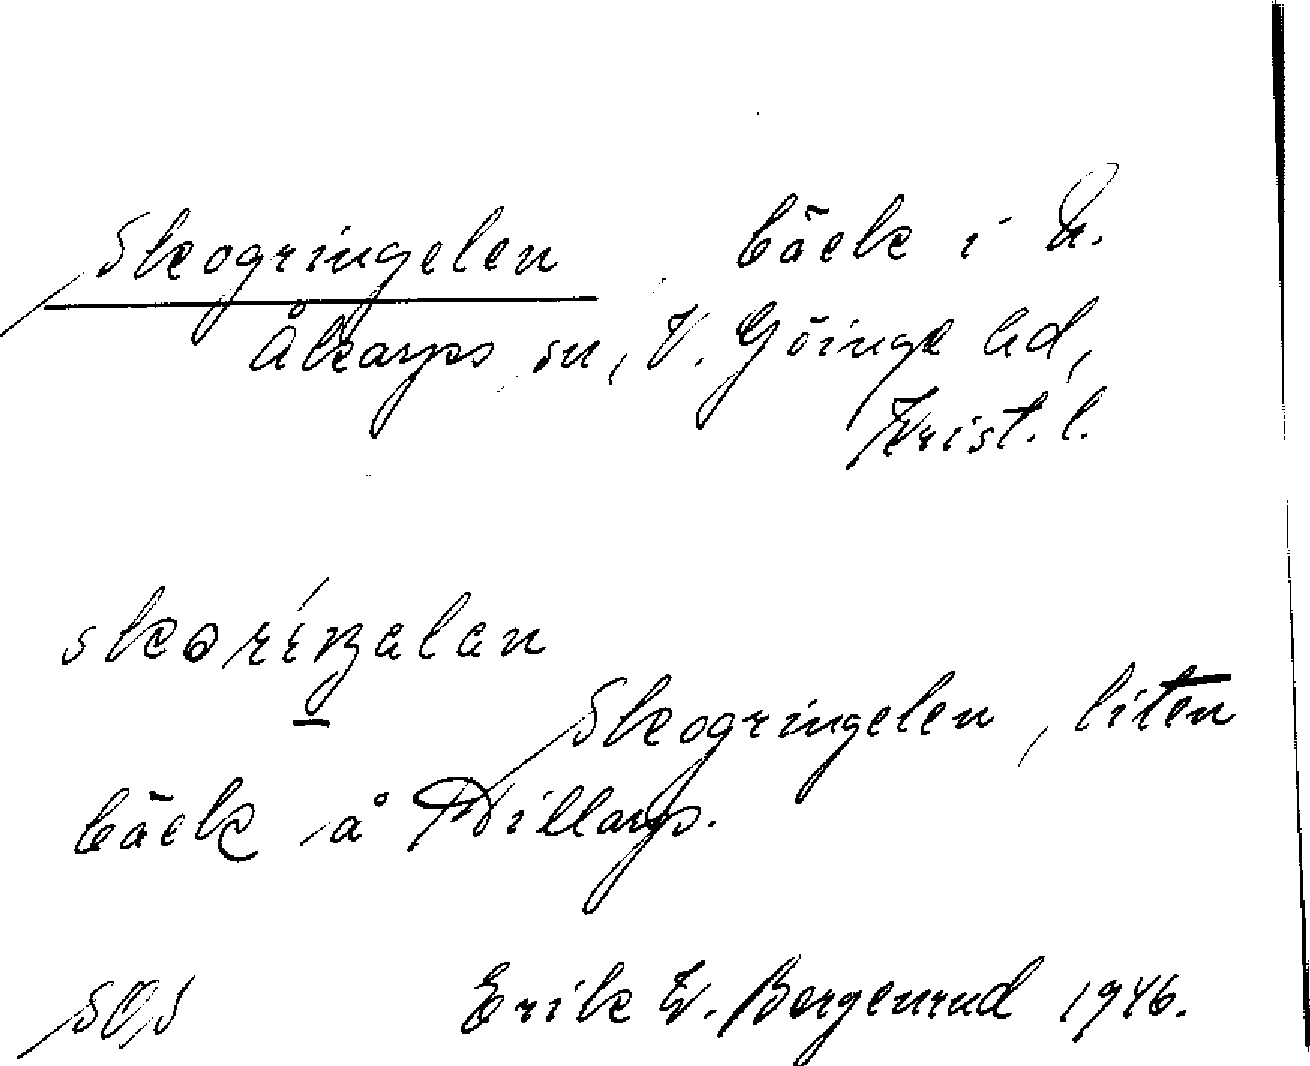 Skogringelen bäck i N.
Åkarps sn, V. Göinge hd,
Krist. l.
skoríŋalan
Skogringelen, liten
bäck å Dillarp.
SOS Erik W. Bergenrud 1946.